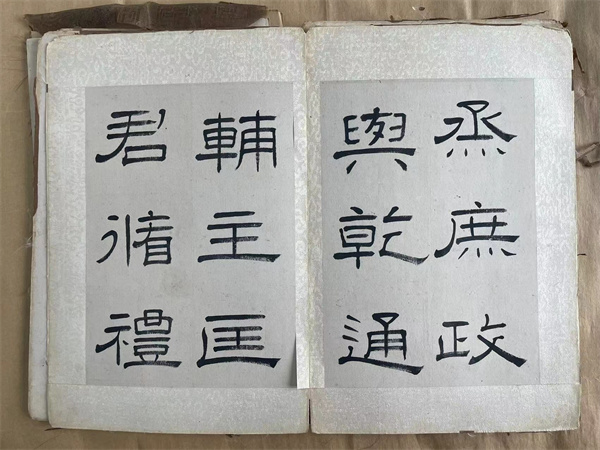 烝庶政
與乾通
輔主匡
君循禮